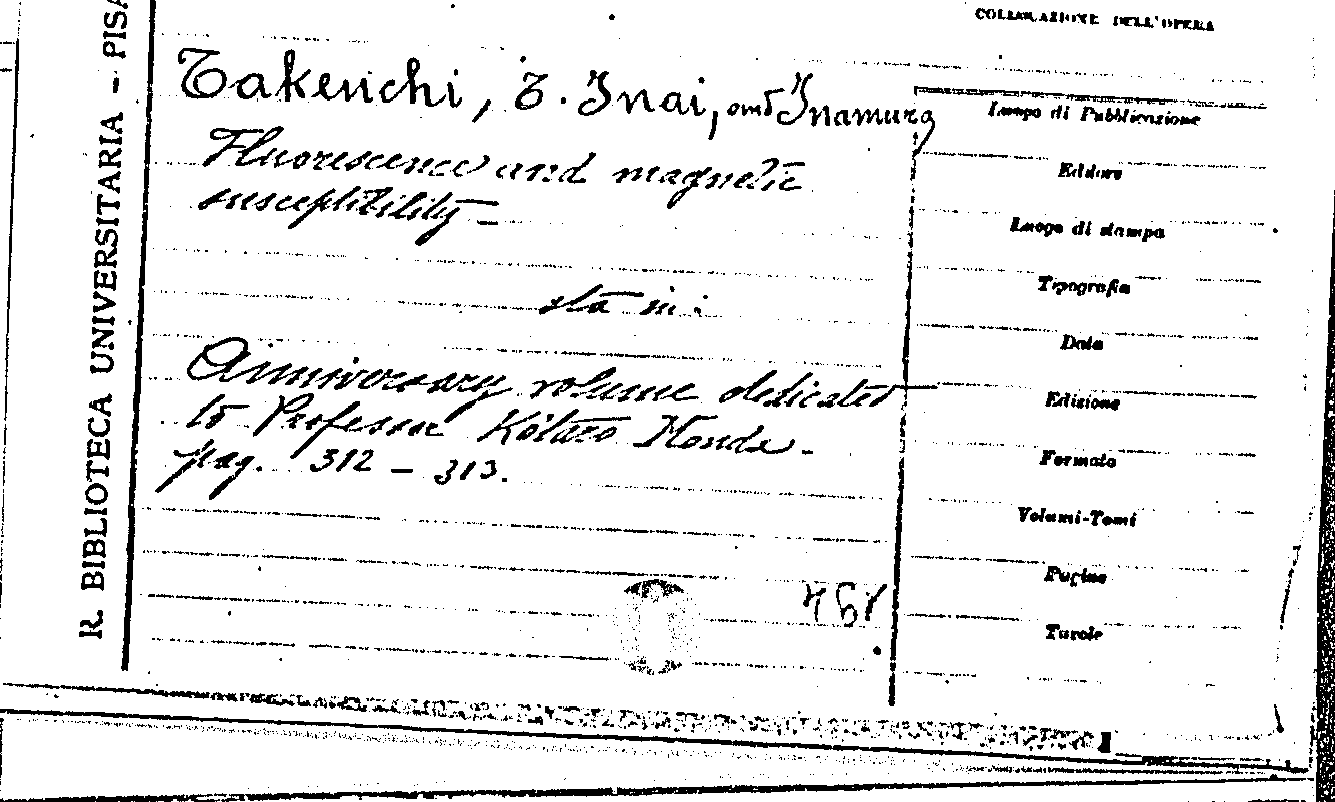 COLLOCAZIONE DELL'OPERA
R. BIBLIOTECA UNIVERSITARIA - PISA
Takenchi, T. Inai, and Inamura
Fluorescence and magnetic
susceptibility =
sta in:
Anniversary volume dedicated
to Professor Kôtaro Honda -
pag. 312 - 313.
Luogo di Pubblicazione
Editore
Luogo di stampa
Tipografia
Data
Edizione
Formato
Volumi-Tomi
Pagine
Tavole